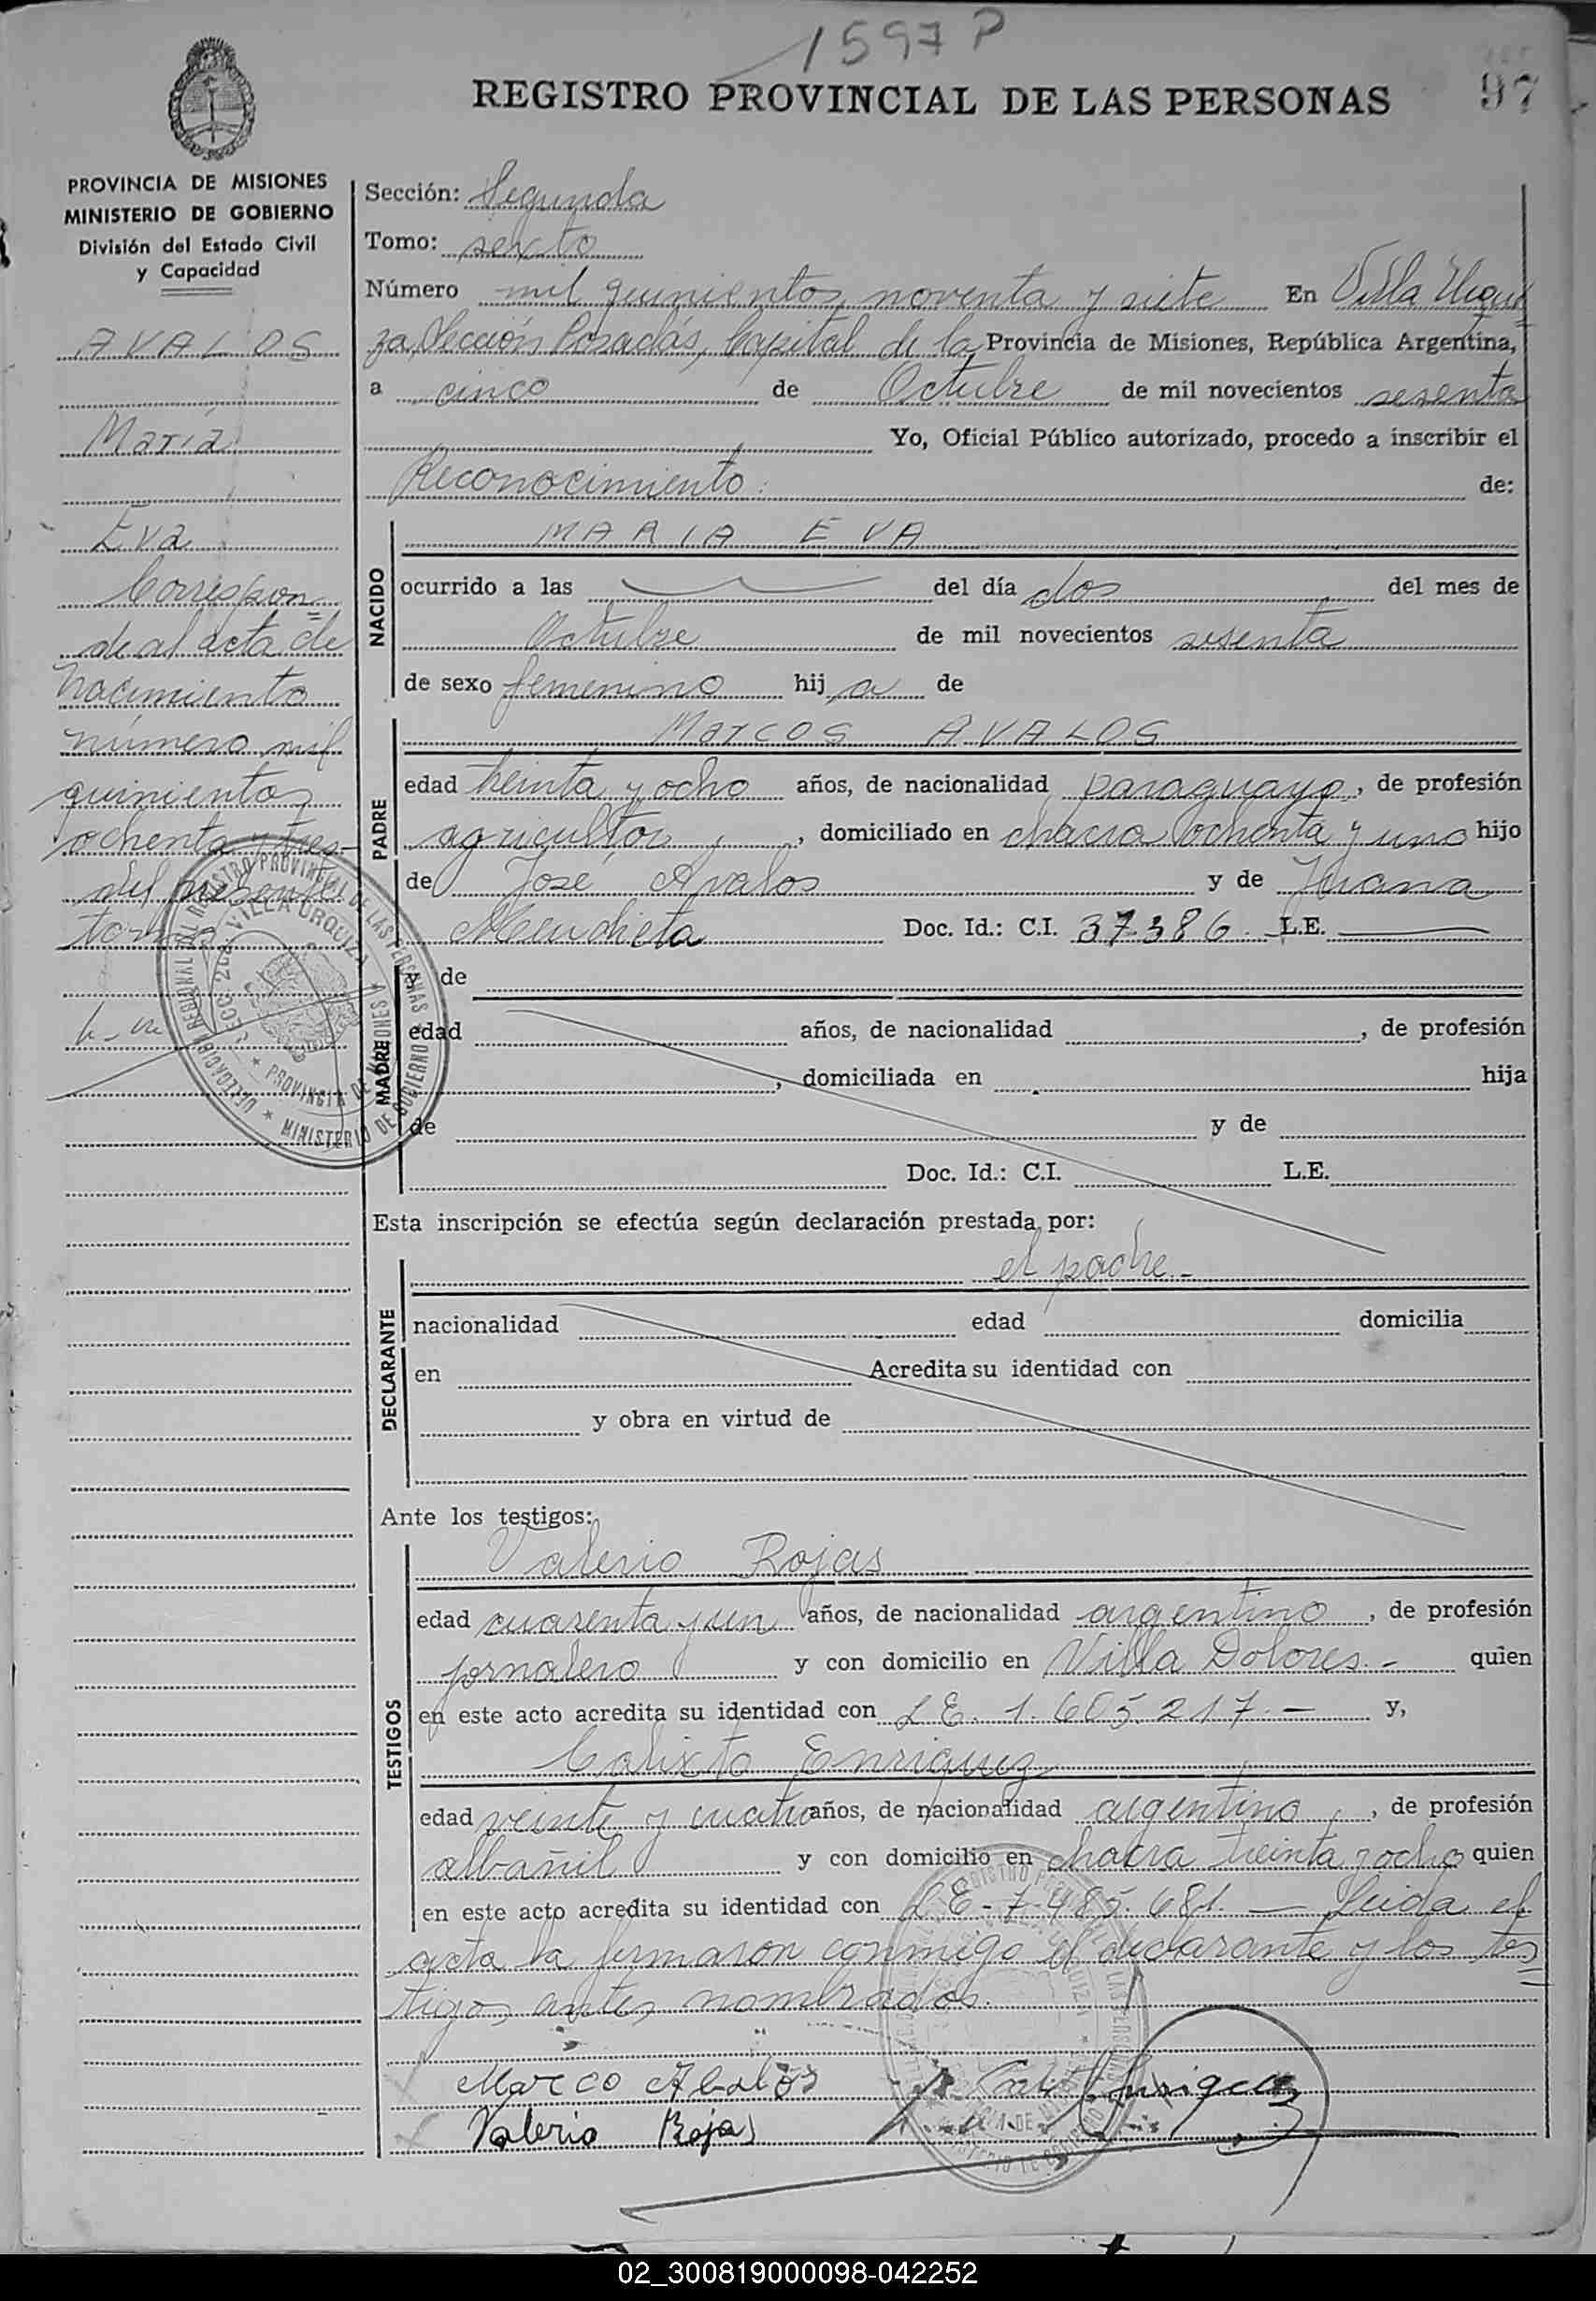 1597 P
REGISTRO PROVINCIAL DE LAS PERSONAS
97
PROVINCIA DE MISIONES
MINISTERIO DE GOBIERNO
División del Estado Civil
y Capacidad
AVALOS
María
Eva
Correspon=
de al acta de
nacimiento
número mil
quinientos
ochenta y tres
del presente
tomo
Sección: Segunda
Tomo: sexto
Número mil quinientos noventa y siete En Villa Urqui=
za, Sección Posadas, Capital de la Provincia de Misiones, República Argentina,
a cinco de Octubre de mil novecientos sesenta
Yo, Oficial Público autorizado, procedo a inscribir el
Reconocimiento: de:
NACIDO
MARIA EVA
ocurrido a las del día dos del mes de
Octubre de mil novecientos sesenta
de sexo femenino hija de
PADRE
Marcos AVALOS
edad treinta y ocho años, de nacionalidad paraguayo, de profesión
agricultor, domiciliado en chacra ochenta y uno hijo
de José Avalos y de Juana
Mendieta Doc. Id.: C.I. 37386 L.E.
MADRE
y de
edad años, de nacionalidad , de profesión
, domiciliada en hija
de y de
Doc. Id.: C.I. L.E.
Esta inscripción se efectúa según declaración prestada por:
el padre.-
DECLARANTE
nacionalidad edad domicilia
en Acredita su identidad con
y obra en virtud de
Ante los testigos:
TESTIGOS
Valerio Rojas
edad cuarenta y un años, de nacionalidad argentino, de profesión
jornalero y con domicilio en Villa Dolores.- quien
en este acto acredita su identidad con L.E. 1.605.217.- y,
Calixto Enriquez
edad veinte y cuatro años, de nacionalidad argentino, de profesión
albañil y con domicilio en chacra treinta y ocho quien
en este acto acredita su identidad con L.E-7.485.681.— Leida el
acta la firmaron conmigo el declarante y los tes=
tigos antes nombrados.
Marco Abalos
Valerio Rojas
02_300819000098-042252